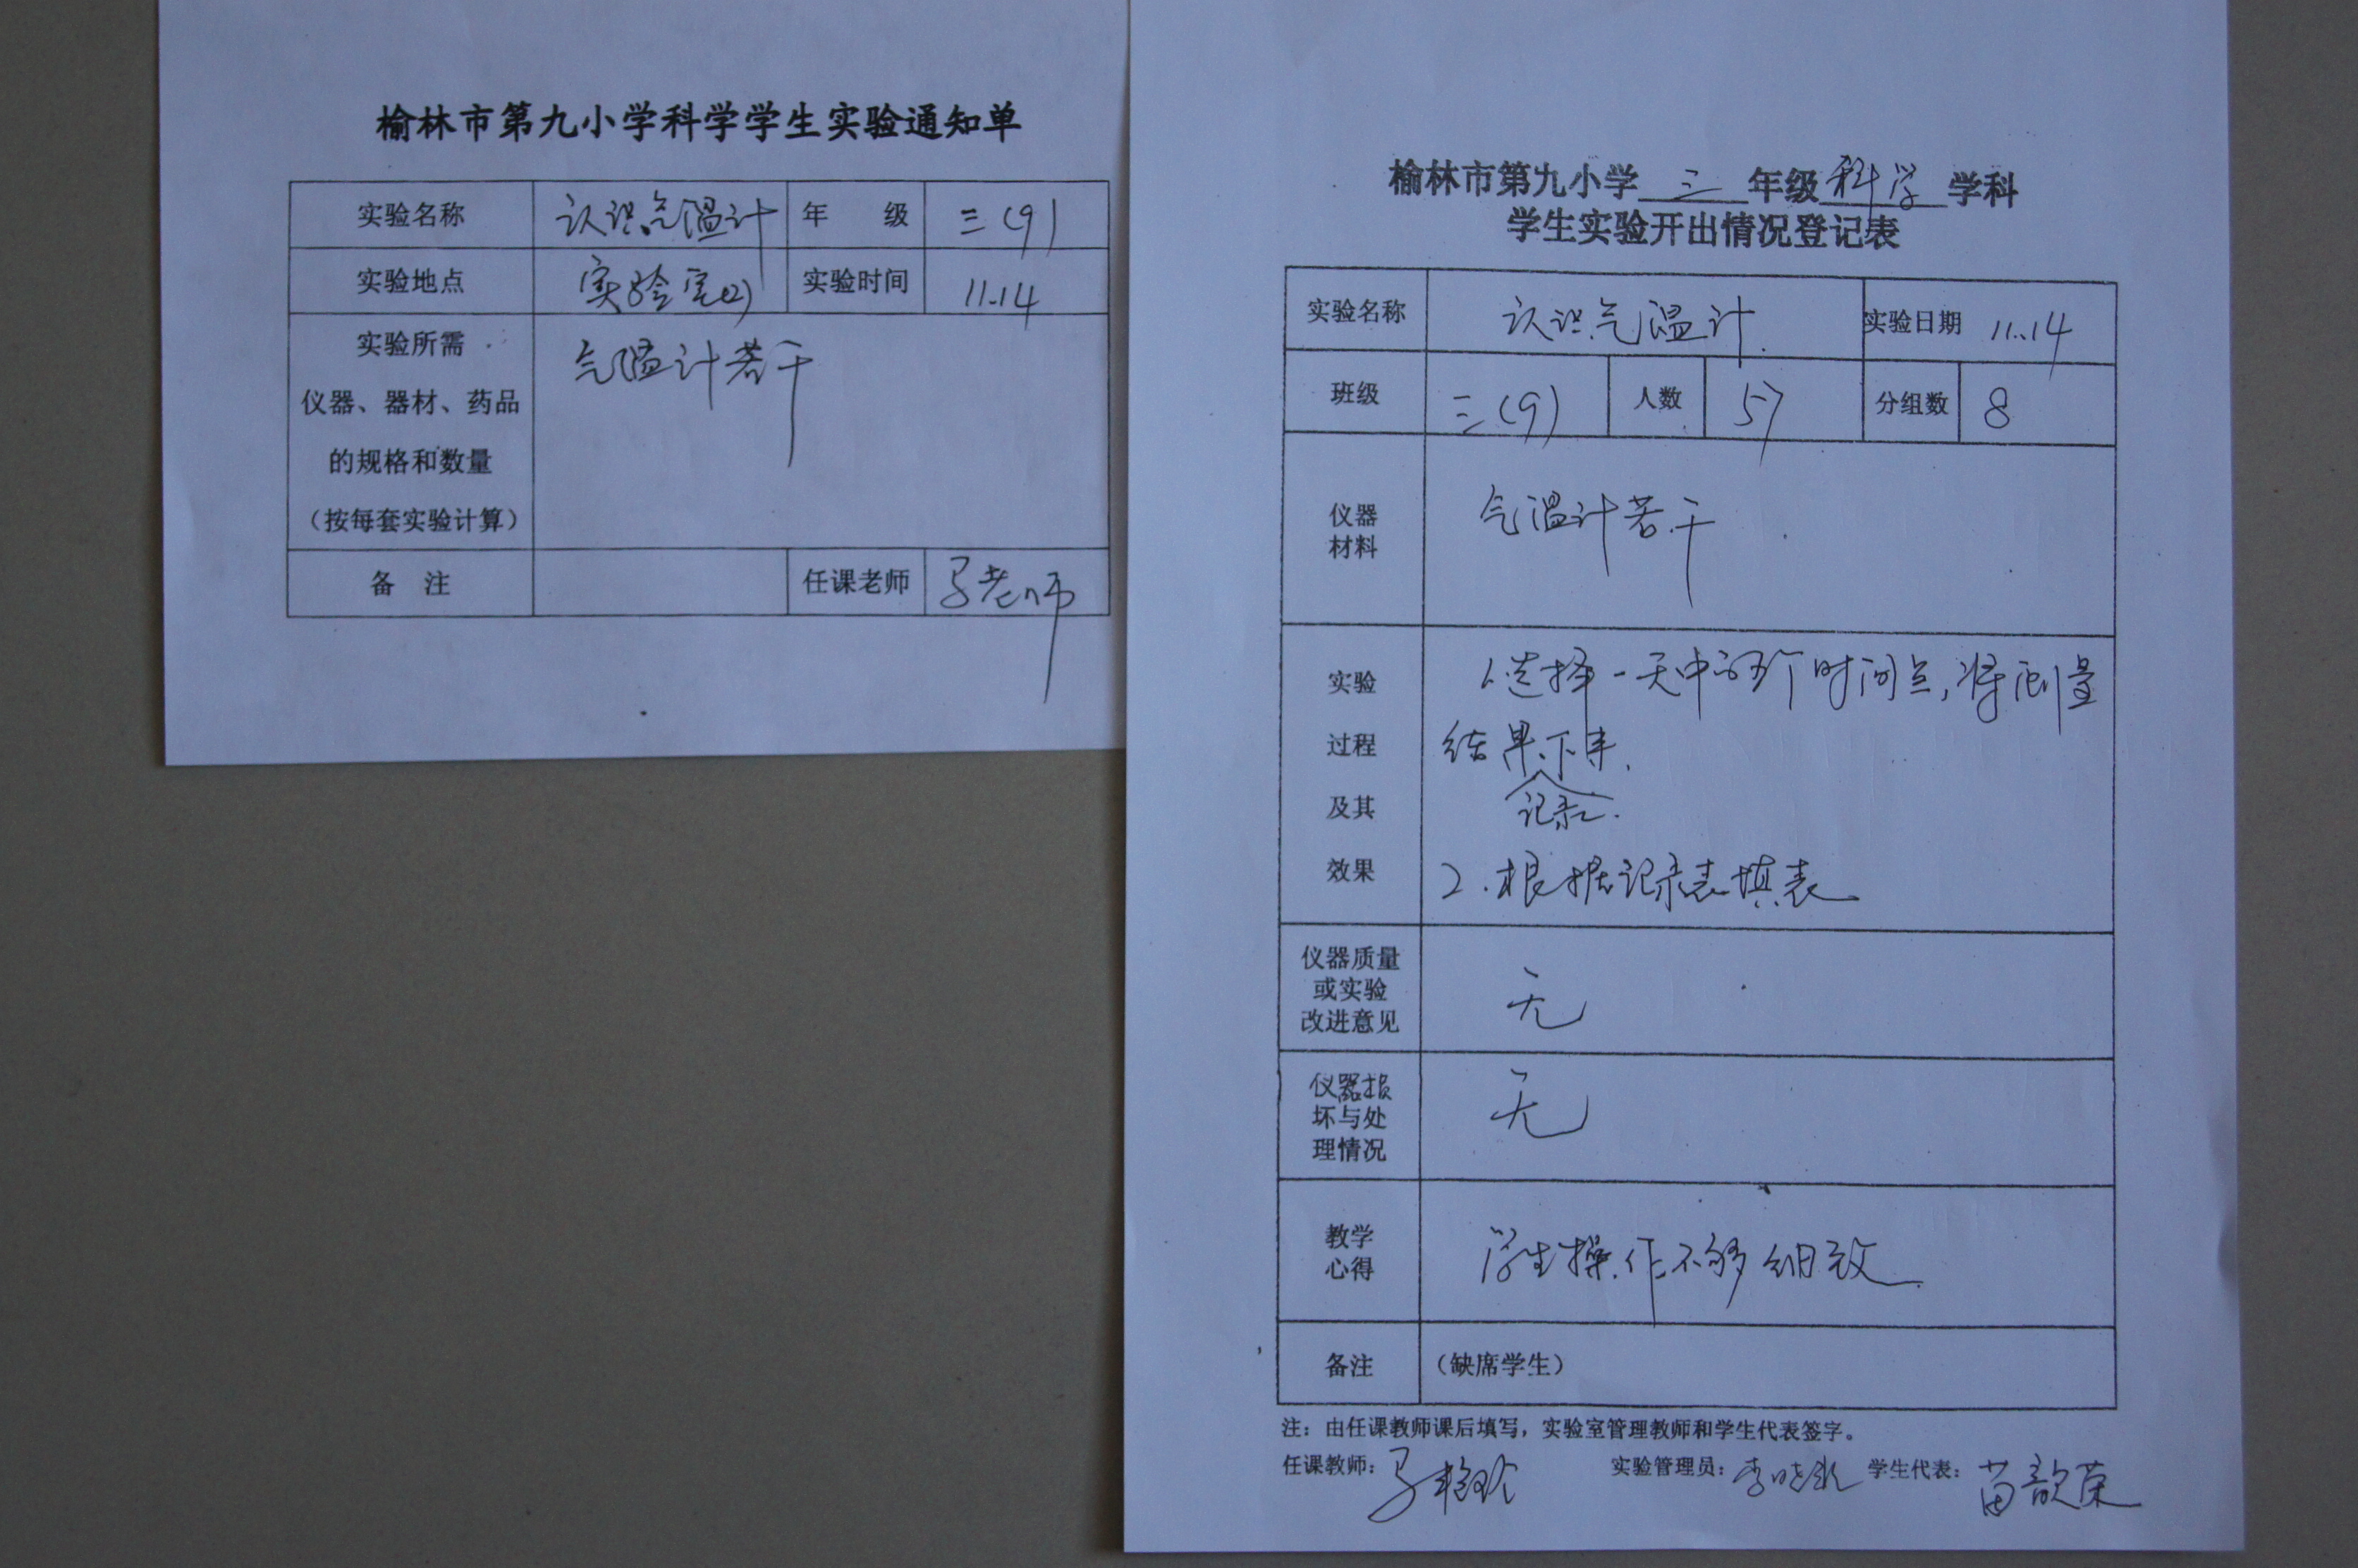 榆林市第九小学科学学生实验通知单
实验名称 认识气温计 年 级 三(9)
实验地点 实验室(2) 实验时间 11.14
实验所需
仪器、器材、药品
的规格和数量
(按每套实验计算)
气温计若干
备 注 任课老师 马老师
榆林市第九小学 三 年级 科学 学科
学生实验开出情况登记表
实验名称 认识气温计. 实验日期 11.14
班级 三(9) 人数 57 分组数 8
仪器
材料
气温计若干
实验
过程
及其
效果
1.选择一天中的五个时间点,将测量
结果下来.
记录.
2.根据记录表填表
仪器质量
或实验
改进意见
无
仪器损
坏与处
理情况
无
教学
心得
学生操作不够细致.
备注 (缺席学生)
注:由任课教师课后填写,实验室管理教师和学生代表签字。
任课教师:马艳玲 实验管理员:李晓 学生代表:苗歆